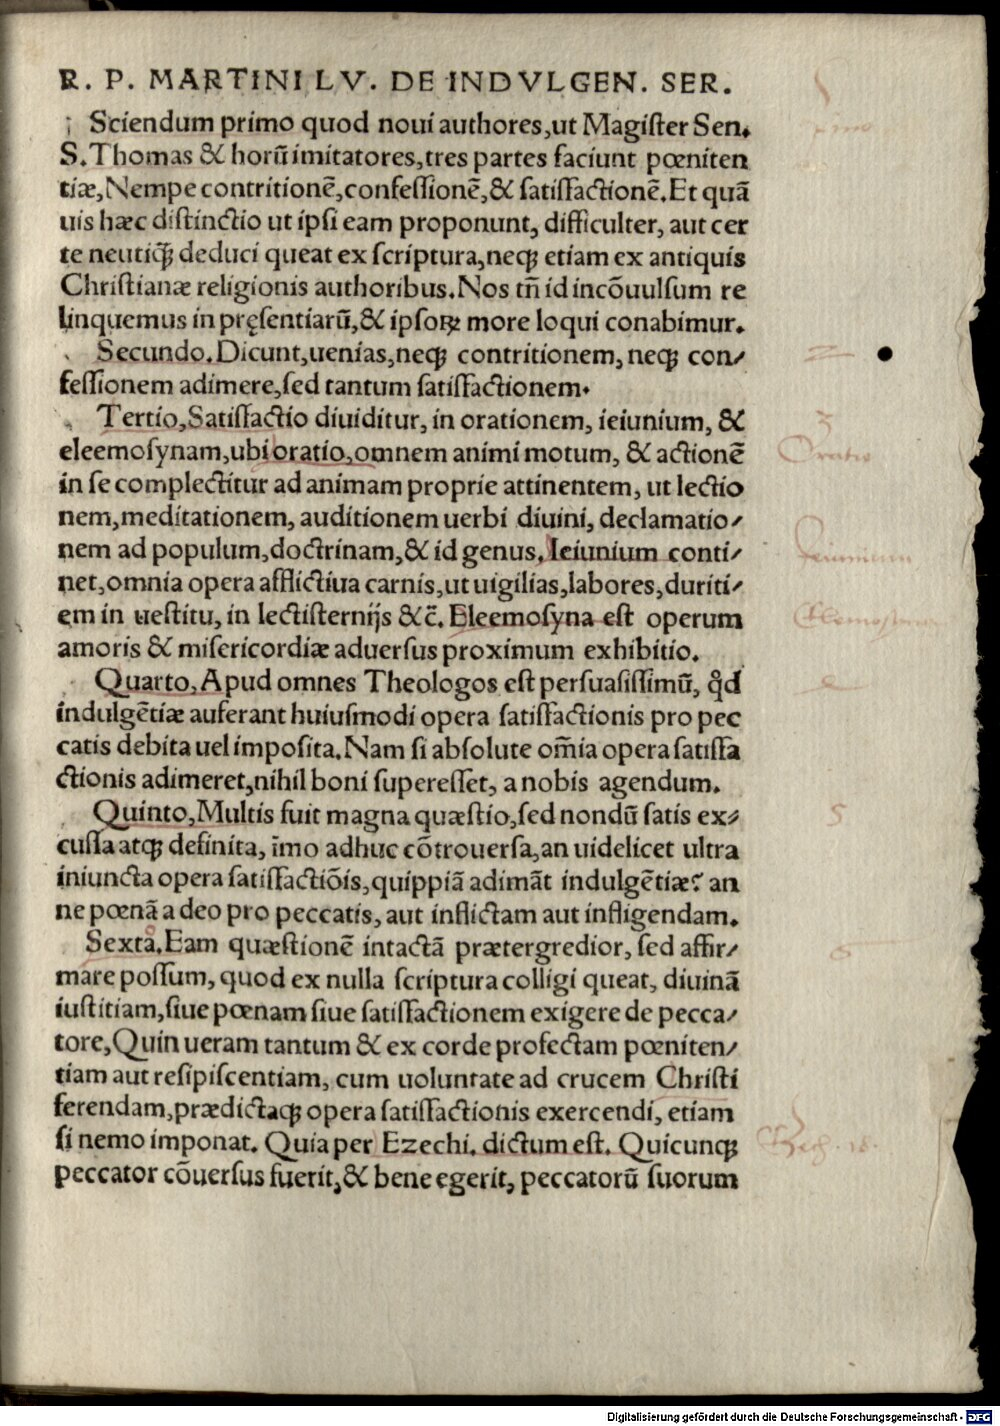 R. P. MARTINI LV. DE INDVLGEN. SER.
Sciendum primo quod noui authores,ut Magiſter Sen.
S.Thomas & horū imitatores,tres partes faciunt pœniten
tiæ,Nempe contritionē,confeſſionē,& ſatiſfactionē.Et quā
uis hæc diſtinctio ut ipſi eam proponunt, difficulter, aut cer
te neutiꝗ̃ deduci queat ex ſcriptura,neqꝫ etiam ex antiquis
Chriſtianæ religionis authoribus.Nos tñ id incōuulſum re
linquemus in pręſentiarū,& ipſoꝝ more loqui conabimur.
Secundo.Dicunt,uenias,neqꝫ contritionem, neqꝫ con/
feſſionem adimere,ſed tantum ſatiſfactionem.
Tertio,Satiſfactio diuiditur, in orationem, ieiunium, &
eleemoſynam,ubi oratio,omnem animi motum, & actionē
in ſe complectitur ad animam proprie attinentem, ut lectio
nem,meditationem, auditionem uerbi diuini, declamatio/
nem ad populum,doctrinam,& id genus. Ieiunium conti/
net,omnia opera afflictiua carnis,ut uigilias,labores,duriti/
em in ueſtitu, in lectiſternijs &c̄. Eleemoſyna eſt operum
amoris & miſericordiæ aduerſus proximum exhibitio.
Quarto,Apud omnes Theologos eſt perſuaſiſſimū, qd̄
indulgētiæ auferant huiuſmodi opera ſatiſfactionis pro pec
catis debita uel impoſita.Nam ſi abſolute om̄ia opera ſatiſfa
ctionis adimeret,nihil boni ſupereſſet, a nobis agendum.
Quinto,Multis fuit magna quæſtio,ſed nondū ſatis ex/
cuſſa atqꝫ definita, īmo adhuc cōtrouerſa,an uidelicet ultra
iniuncta opera ſatiſfactiōis,quippiā adimāt indulgētiæ? an
ne pœnā a deo pro peccatis, aut inflictam aut infligendam.
Sexta.Eam quæſtionē intactā prætergredior, ſed affir/
mare poſſum, quod ex nulla ſcriptura colligi queat, diuinā
iuſtitiam,ſiue pœnam ſiue ſatiſfactionem exigere de pecca/
tore,Quin ueram tantum & ex corde profectam pœniten/
tiam aut reſipiſcentiam, cum uoluntate ad crucem Chriſti
ferendam,prædictaqꝫ opera ſatiſfactionis exercendi, etiam
ſi nemo imponat. Quia per Ezechi. dictum eſt. Quicunqꝫ
peccator cōuerſus fuerit,& bene egerit, peccatorū ſuorum
2
3
Oratio
Ieiunium
5
6
Digitalisierung gefördert durch die Deutsche Forschungsgemeinschaft - DFG